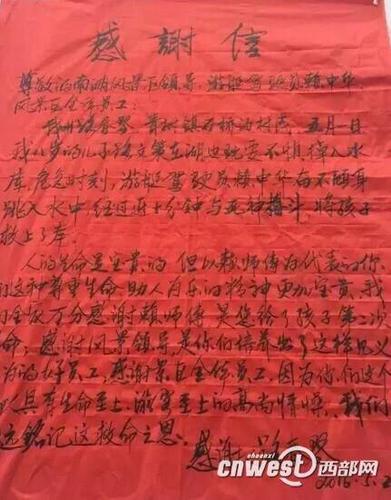 感謝信
尊敬的南湖风景区领导、游艇驾驶员赖中华
风景区全体员工：
我叫 村民 五月一日
我八岁的儿子 在湖边玩耍不慎掉入水
库，危急时刻，游艇驾驶员赖中华奋不顾身
跳入水中经过近十分钟与死神搏斗，将孩子
救上了岸。
人的生命是宝贵的，但以赖师傅为代表的你
们这种尊重生命，助人为乐的精神更加宝贵，我
们全家万分感谢赖师傅，是您给了孩子第二次
命，感谢风景领导，是你们培养出了这样见义
为的好员工，感谢景区全体员工，因为你们这个
具有生命至上，游客至上的高尚情操，我们
远铭记这救命之恩。感谢人
2016.5.2
cnwest西部网